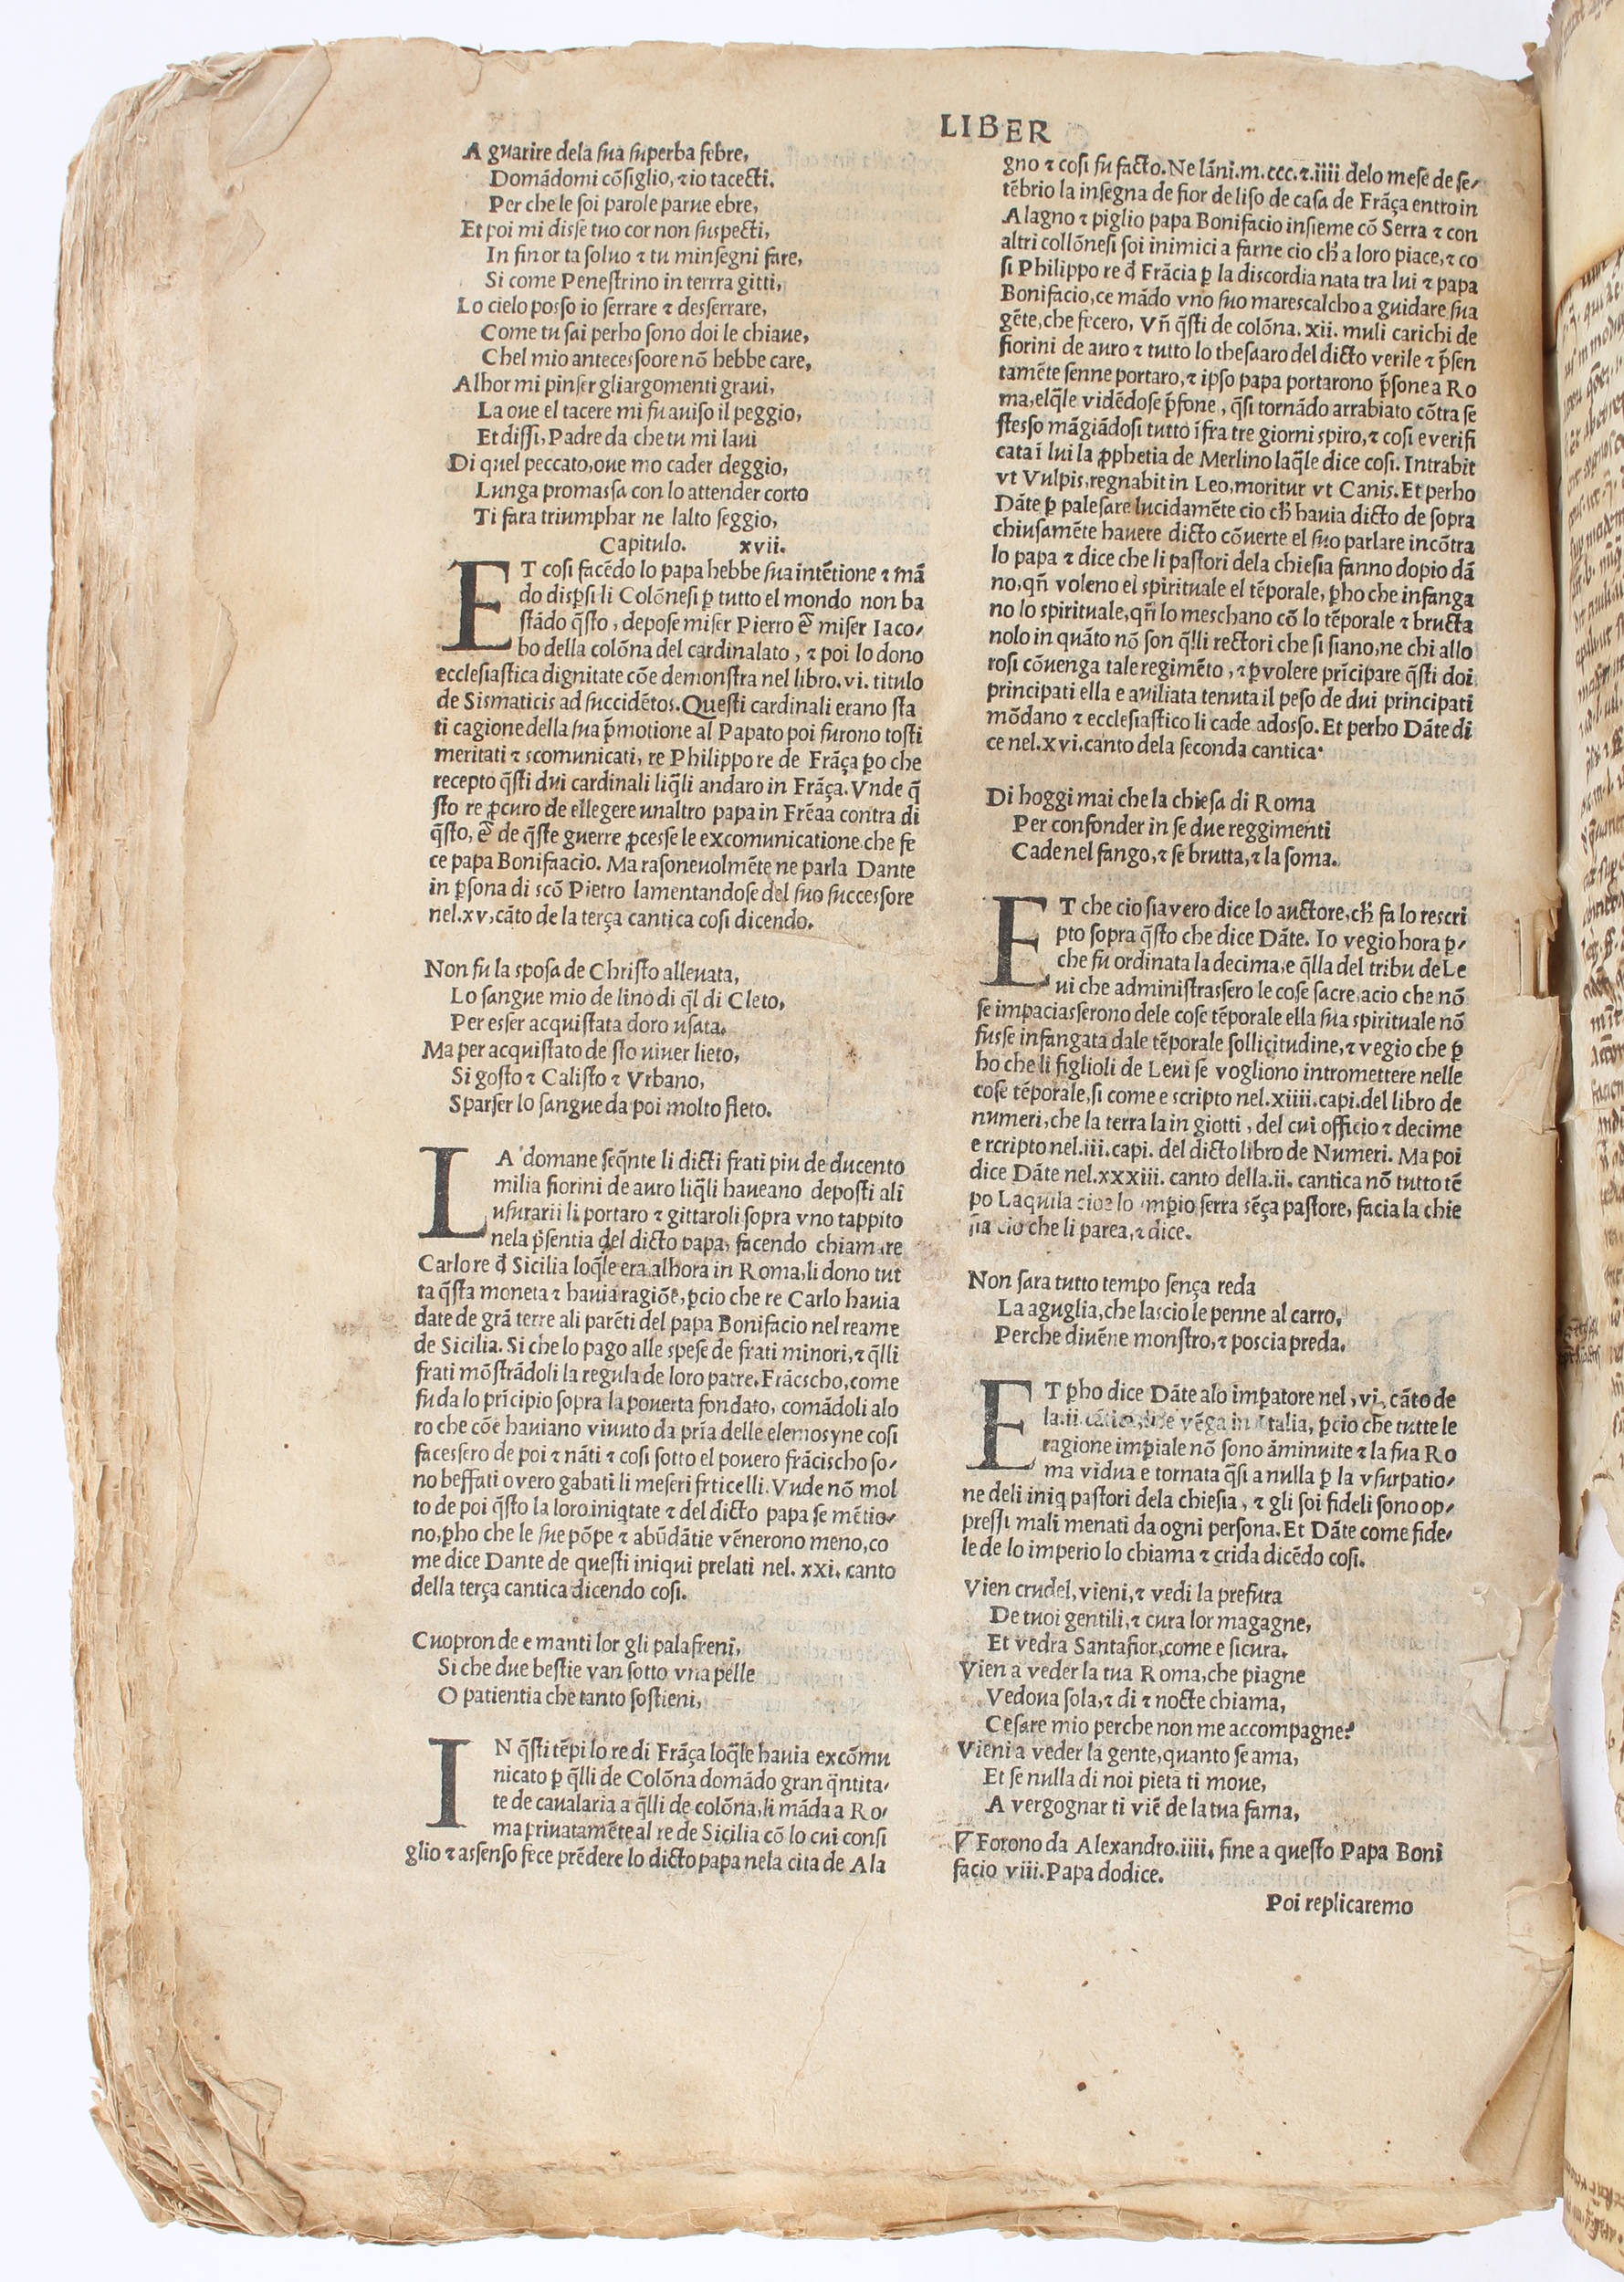 LIBER
A guarire dela sua superba febre,
Domādomi cōsiglio, ⁊ io tacecti.
Per che le soi parole parue ebre,
Et poi mi disse tuo cor non suspecti,
In fin or ta soluo ⁊ tu minsegni fare,
Si come Penestrino in terrra gitti,
Lo cielo posso io serrare ⁊ desserrare,
Come tu sai perho sono doi le chiaue,
Chel mio antecessoore nō hebbe care,
Alhor mi pinser gliargomenti graui,
La oue el tacere mi fu auiso il peggio,
Et dissi, Padre da che tu mi laui
Di quel peccato, oue mo cader deggio,
Lunga promassa con lo attender corto
Ti fara triumphar ne lalto seggio,
Capitulo. xvii.
ET cosi facēdo lo papa hebbe sua intētione ⁊ mā
do disp̱si li Colōnesi p̱ tutto el mondo non ba
stādo q̄sto, depose miser Pierro ē miser Iaco/
bo della colōna del cardinalato, ⁊ poi lo dono
ecclesiastica dignitate cōe demonstra nel libro. vi. titulo
de Sismaticis ad succidētos. Questi cardinali erano sta
ti cagione della sua p̄motione al Papato poi furono tosti
meritati ⁊ scomunicati, re Philippo re de Frāça p̱o che
recepto q̄sti dui cardinali liq̄li andaro in Frāça. Vnde q̄
sto re ꝓcuro de ellegere unaltro papa in Frēaa contra di
q̄sto, ē de q̄ste guerre ꝓcesse le excomunicatione che fe
ce papa Bonifaacio. Ma rasoneuolmēte ne parla Dante
in p̱sona di scō Pietro lamentandose del suo successore
nel. xv, cāto de la terça cantica cosi dicendo.
Non fu la sposa de Christo alleuata,
Lo sangue mio de lino di q̄l di Cleto,
Per esser acquistata doro usata.
Ma per acquistato de sto uiuer lieto,
Si gosto ⁊ Calisto ⁊ Vrbano,
Sparser lo sangue da poi molto fleto.
LA domane seq̄nte li dicti frati piu de ducento
milia fiorini de auro liq̄li haueano deposti ali
usurarii li portaro ⁊ gittaroli sopra vno tappito
nela p̄sentia del dicto papa, facendo chiamare
Carlo re đ Sicilia loq̄le era alhora in Roma, li dono tut
ta q̄sta moneta ⁊ hauia ragiōe, p̱cio che re Carlo hauia
date de grā terre ali parēti del papa Bonifacio nel reame
de Sicilia. Si che lo pago alle spese de frati minori, ⁊ q̄lli
frati mōstrādoli la regula de loro patre. Frācscho, come
fu da lo prīcipio sopra la pouerta fondato, comādoli alo
ro che cōe hauiano viuuto da pria delle elemosyne cosi
facessero de poi ⁊ nāti ⁊ cosi sotto el pouero frācischo so/
no beffati overo gabati li meseri frticelli. Vude nō mol
to de poi q̄sto la loro iniq̱tate ⁊ del dicto papa se mētio/
no, p̱ho che le sue pōpe ⁊ abūdātie vēnerono meno, co
me dice Dante de questi iniqui prelati nel. xxi. canto
della terça cantica dicendo cosi.
Cuopron de e manti lor gli palafreni,
Si che due bestie van sotto vna pelle
O patientia che tanto sostieni,
IN q̄sti tēpi lo re di Frāça loq̄le hauia excōmu
nicato p̱ q̄lli de Colōna domādo gran q̄ntita/
te de caualaria a q̄lli de colōna, li māda a Ro/
ma priuatamēte al re de Sicilia cō lo cui consi
glio ⁊ assenso fece prēdere lo dicto papa nela cita de Ala
gno ⁊ cosi fu facto. Ne lāni. m. ccc. ⁊. iiii delo mese de se/
tēbrio la insegna de fior de liso de casa de Frāça entro in
Alagno ⁊ piglio papa Bonifacio insieme cō Serra ⁊ con
altri collōnesi soi inimici a farne cio ch̄ a loro piace, ⁊ co
si Philippo re đ Frācia p̱ la discordia nata tra lui ⁊ papa
Bonifacio, ce mādo vno suo marescalcho a guidare sua
gēte, che fecero, Vñ q̄sti de colōna. xii. muli carichi de
fiorini de auro ⁊ tutto lo thesaaro del dicto verile ⁊ p̄sen
tamēte senne portaro, ⁊ ipso papa portarono p̄sone a Ro
ma, elq̄le vidēdose p̄fone, q̄si tornādo arrabiato cōtra se
stesso māgiādosi tutto īfra tre giorni spiro, ⁊ cosi e verifi
cata ī lui la ꝓphetia de Merlino laq̄le dice cosi. Intrabit
vt Vulpis, regnabit in Leo, moritur vt Canis. Et perho
Dāte p̱ palesare lucidamēte cio ch̄ hauia dicto de sopra
chiusamēte hauere dicto cōuerte el suo parlare incōtra
lo papa ⁊ dice che li pastori dela chiesia fanno dopio dā
no, qñ voleno el spirituale el tēporale, p̱ho che infanga
no lo spirituale, qñ lo meschano cō lo tēporale ⁊ bructa
nolo in quāto nō son q̄lli rectori che si siano, ne chi allo
rosi cōuenga tale regimēto, ⁊ p̱ volere prīcipare q̄sti doi
principati ella e auiliata tenuta il peso de dui principati
mōdano ⁊ ecclesiastico li cade adosso. Et perho Dāte di
ce nel. xvi. canto dela seconda cantica.
Di hoggi mai che la chiesa di Roma
Per confonder in se due reggimenti
Cade nel fango, ⁊ se brutta, ⁊ la soma.
ET che cio sia vero dice lo auctore, ch̄ fa lo rescri
pto sopra q̄sto che dice Dāte. Io vegio hora p̱/
che fu ordinata la decima, e q̄lla del tribu de Le
ui che administrassero le cose sacre, acio che nō
se impaciasserono dele cose tēporale ella sua spirituale nō
fusse infangata dale tēporale sollicitudine, ⁊ vegio che p̱
ho che li figlioli de Leui se vogliono intromettere nelle
cose tēporale, si come e scripto nel. xiiii. capi. del libro de
numeri, che la terra la in giotti, del cui officio ⁊ decime
e rcripto nel. iii. capi. del dicto libro de Numeri. Ma poi
dice Dāte nel. xxxiii. canto della. ii. cantica nō tutto tē
po Laquila cioe lo impio serra sēça pastore, facia la chie
sia cio che li parea, ⁊ dice.
Non sara tutto tempo sença reda
La aguglia, che lascio le penne al carro,
Perche diuēne monstro, ⁊ poscia preda.
ET p̱ho dice Dāte alo imp̱atore nel, vi, cāto de
la. ii. che vēga in Italia, p̱cio che tutte le
ragione imp̱iale nō sono āminuite ⁊ la sua Ro
ma vidua e tornata q̄si a nulla p̱ la vsurpatio/
ne deli iniq̱ pastori dela chiesia, ⁊ gli soi fideli sono op/
pressi mali menati da ogni persona. Et Dāte come fide/
le de lo imperio lo chiama ⁊ crida dicēdo cosi.
Vien crudel, vieni, ⁊ vedi la presura
De tuoi gentili, ⁊ cura lor magagne,
Et vedra Santafior, come e sicura.
Vien a veder la tua Roma, che piagne
Vedoua sola, ⁊ di ⁊ nocte chiama,
Cesare mio perche non me accompagne?
Vieni a veder la gente, quanto se ama,
Et se nulla di noi pieta ti moue,
A vergognar ti viē de la tua fama,
Forono da Alexandro. iiii. fine a questo Papa Boni
facio viii. Papa dodice.
Poi replicaremo